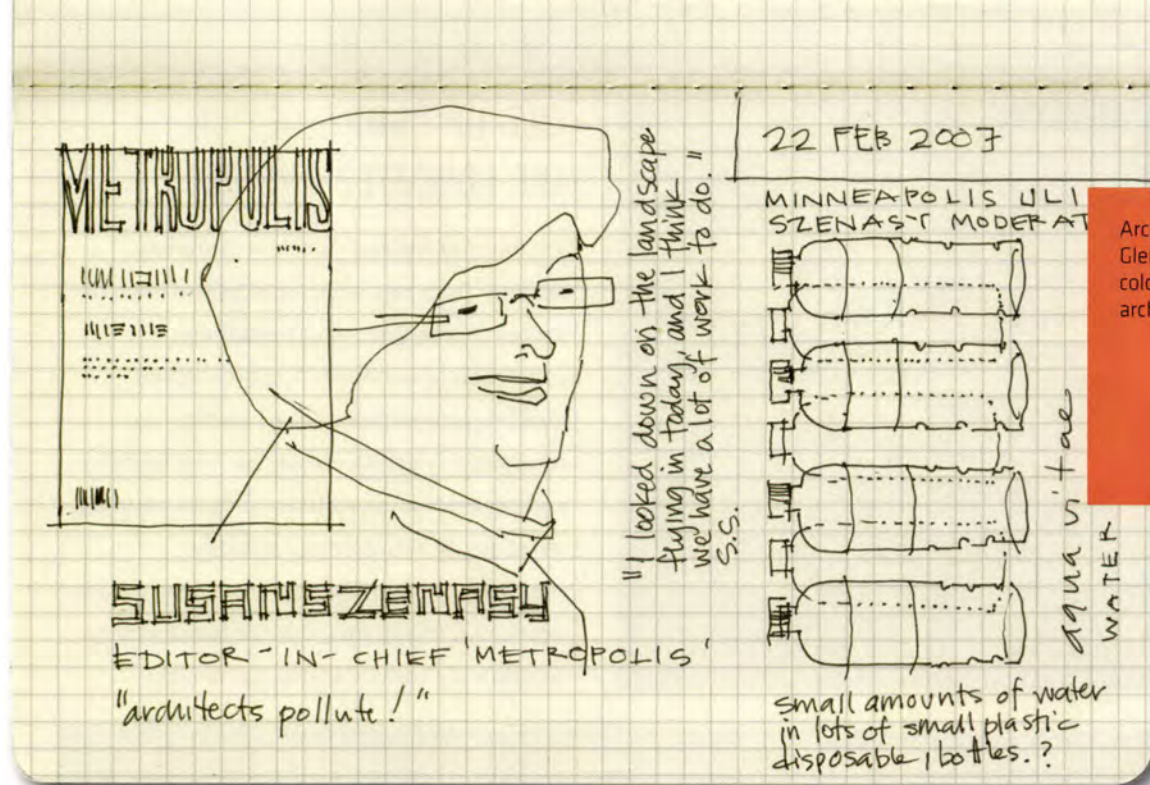 METROPOLIS
SUSAN SZENASY
EDITOR-IN-CHIEF 'METROPOLIS'
"architects pollute!"
"I looked down on the landscape
flying in today, and I think
we have a lot of work to do."
S.S.
22 FEB 2007
MINNEAPOLIS ULI
SZENASY MODERAT
aqua vitae
WATER
small amounts of water
in lots of small plastic
disposable bottles.?
Arc
Gle
colo
arch